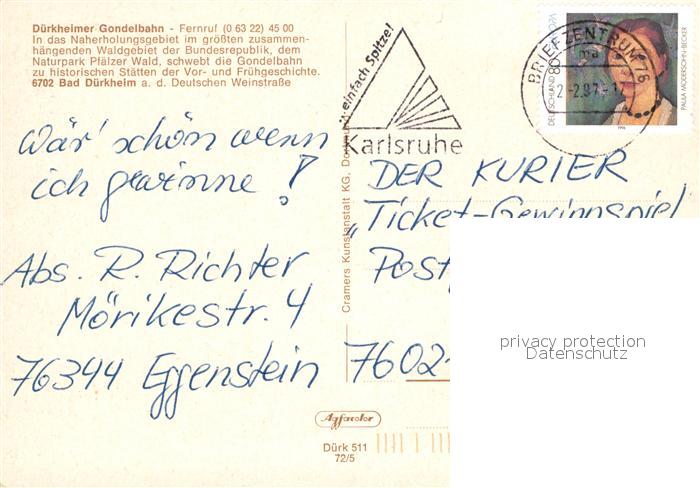 Dürkheimer Gondelbahn - Fernruf (0 63 22) 45 00
In das Naherholungsgebiet im größten zusammen-
hängenden Waldgebiet der Bundesrepublik, dem
Naturpark Pfälzer Wald, schwebt die Gondelbahn
zu historischen Stätten der Vor- und Frühgeschichte.
6702 Bad Dürkheim a. d. Deutschen Weinstraße
wär' schön wenn
ich gewinne!
Abs. R. Richter
Mörikestr. 4
76344 Eggenstein
Cramers Kunstanstalt KG, Dortmund
einfach Spitze!
Karlsruhe
BRIEFZENTRUM 76
DEUTSCHLAND 80
PAULA MODERSOHN-BECKER
1996
DER KURIER
"Ticket-Gewinnspiel
Post
7602
privacy protection
Datenschutz
Agfacolor
Dürk 511
72/5